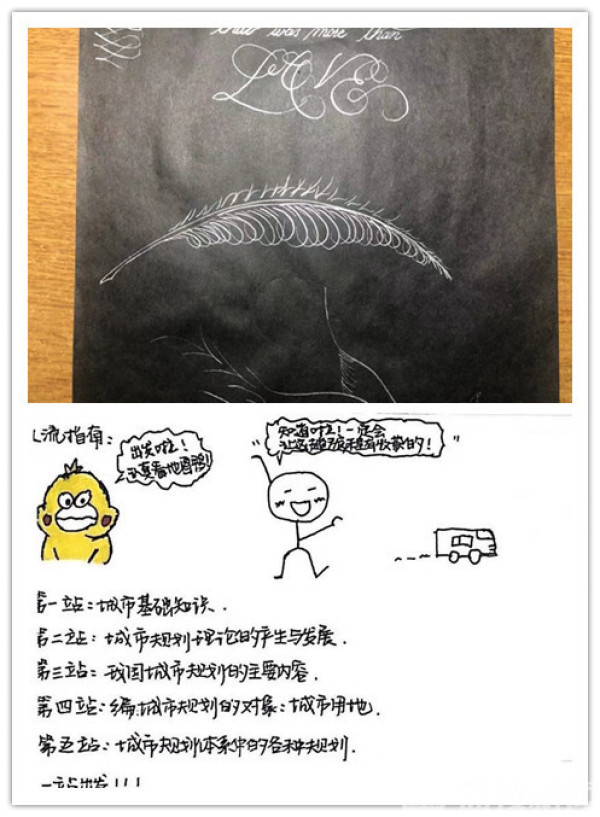 that was more than
LOVE
出发啦！
认真看地图鸭！
知道啦！一定会
让这趟旅程有收获的！
第一站：城市基础知识．
第二站：城市规划理论的产生与发展．
第三站：我国城市规划的主要内容．
第四站：编城市规划的对象：城市用地．
第五站：城市规划体系中的各种规划．
一站出发！！！